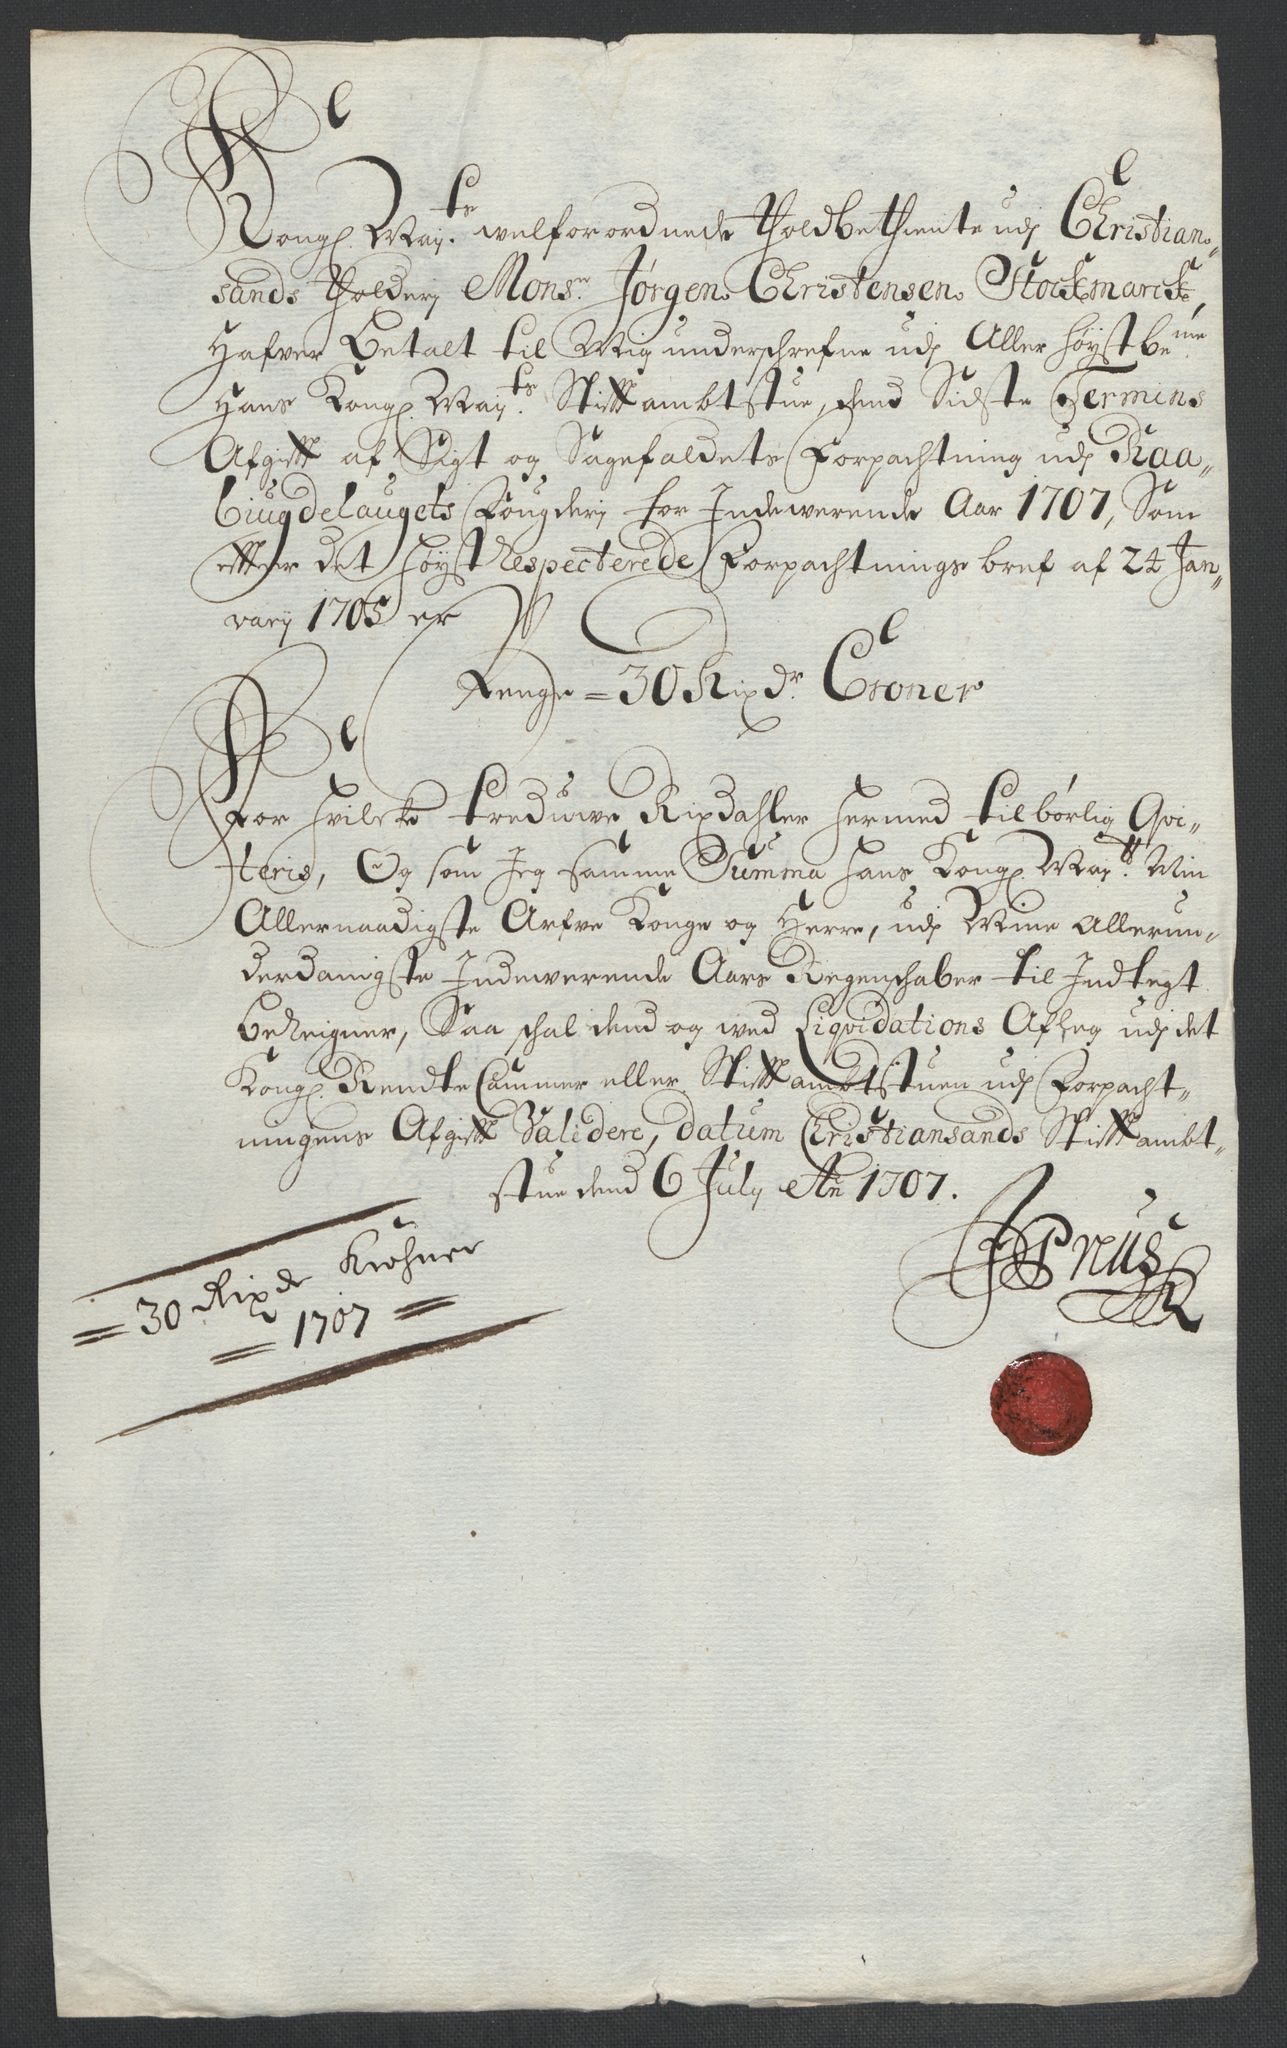 Kongl. Maÿ.ts welforordnede Tholdbethiente udj Christian-
sands Tholderj Monsr. Jørgen Christensen Stockmarck,
Hafver betalt til Mig underschrefne udj Aller høÿstbe.mte
Hans Kongl. Maÿ.ts Stiftambtstue, dend Sidste Termins
Afgift af Sigt og Sagefaldets Forpachtning udj Raa-
biugdelaugets Fougderj for Indewerende Aar 1707, Som
effter det høÿstrespecterede Forpachtnings bref af 24 Jan-
varij 1705 er
Penge = 30 Rixdr. Croner
For hvilcke treduwe Rixdahler hermed tilbørlig Qvi-
teris, Og som Jeg samme Summa hans Kongl. Maÿ.tt Min
Allernaadigste Arfve Konge og Herre, udj Mine Allerun-
derdanigste Indewerende Aars Regenschaber til Indtegt
bereigner, Saa schal dend og wed Liqvidations Afleg udj det
Kongl. Rendte Cammer eller Stiftambtstuen udj Forpacht-
ningens Afgift Validere, datum Christiansands Stiftambt-
stue dend 6 July Ao 1707.
= 30 Rixdr Krohner
= 1707 =